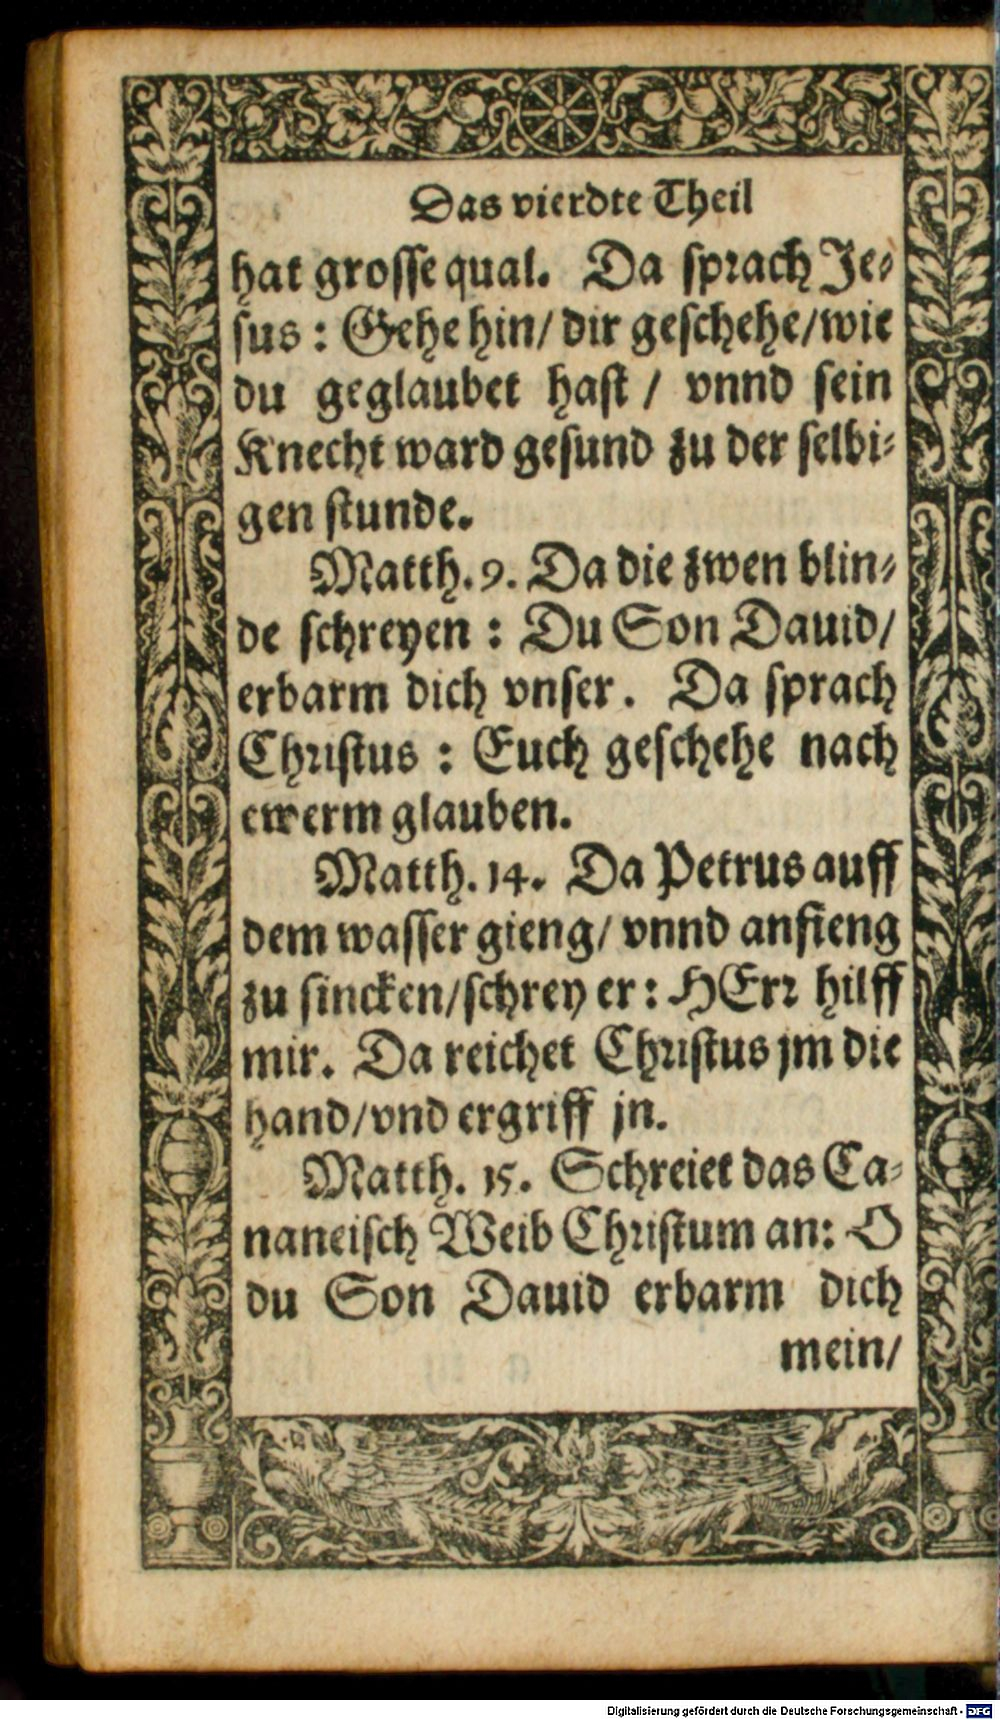 Das vierdte Theil
hat grosse qual. Da sprach Je⸗
sus : Gehe hin/ dir geschehe/ wie
du geglaubet hast / vnnd sein
Knecht ward gesund zu der selbi⸗
gen stunde.
Matth. 9. Da die zwen blin⸗
de schreyen : Du Son Dauid/
erbarm dich vnser. Da sprach
Christus : Euch geschehe nach
ewerm glauben.
Matth. 14. Da Petrus auff
dem wasser gieng/ vnnd anfieng
zu sincken/ schrey er : HErr hilff
mir. Da reichet Christus jm die
hand/ vnd ergriff jn.
Matth. 15. Schreiet das Ca⸗
naneisch Weib Christum an: O
du Son Dauid erbarm dich
mein/
Digitalisierung gefördert durch die Deutsche Forschungsgemeinschaft - DFG